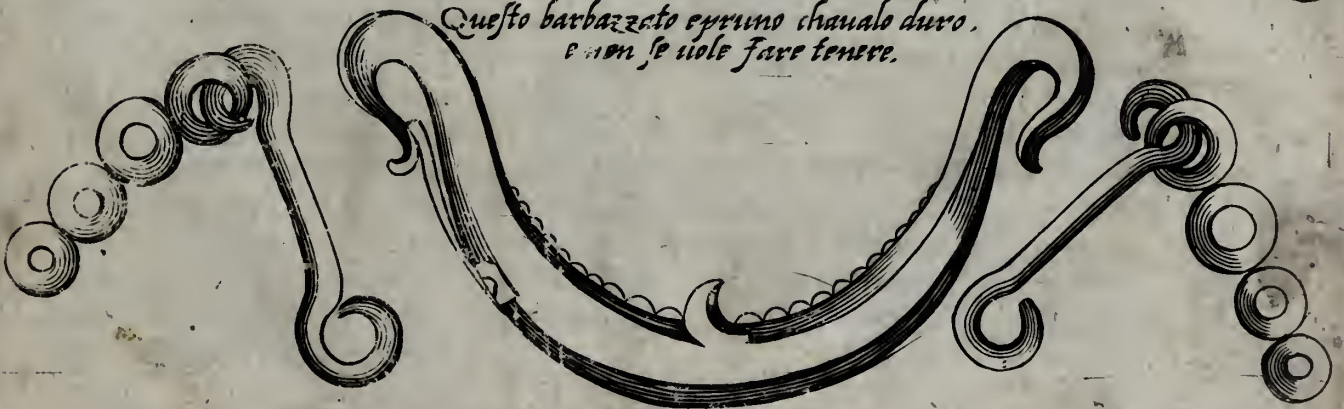 Questo barbazzato epruno chaualo duro.
e non se uole fare tenere.